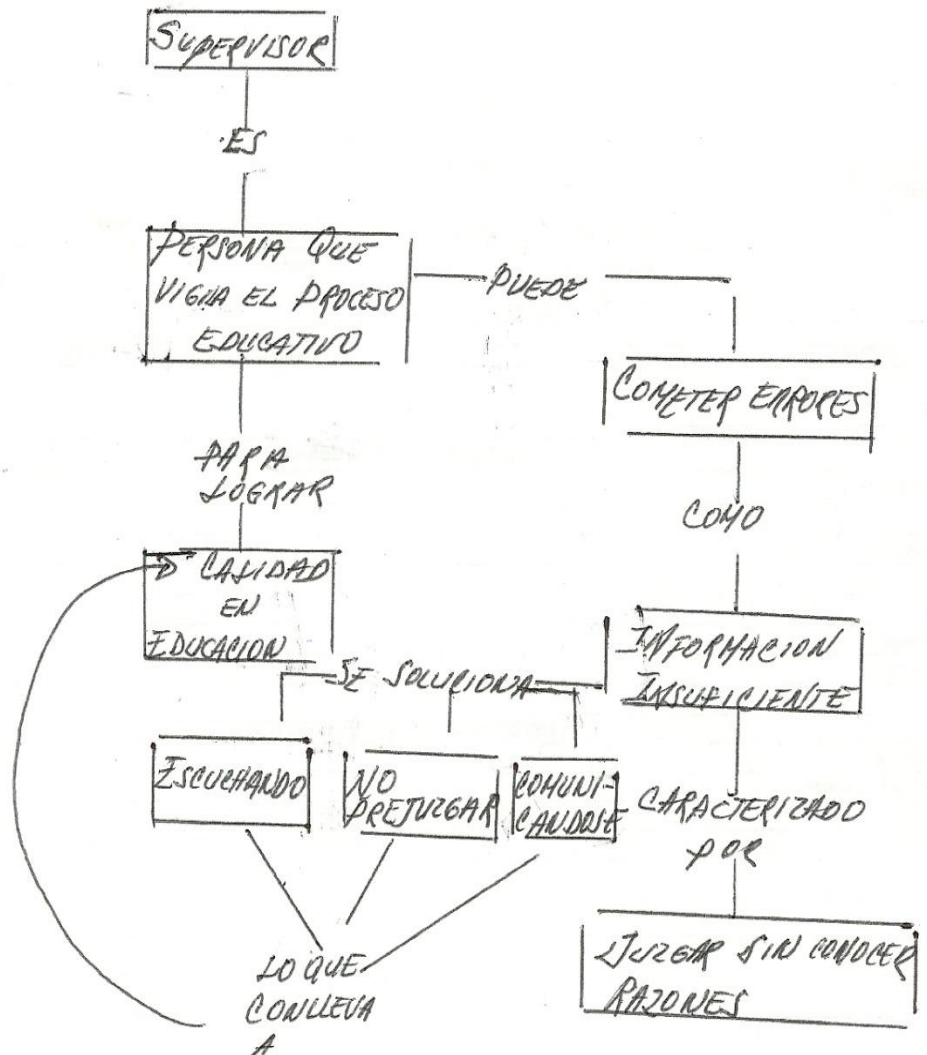 SUPERVISOR
ES
PERSONA QUE
VIGILA EL PROCESO
EDUCATIVO
PUEDE
COMETER ERRORES
PARA
LOGRAR
COMO
CALIDAD
EN
EDUCACION
INFORMACION
INSUFICIENTE
SE SOLUCIONA
ESCUCHANDO
NO
PREJUZGAR
COMUNI-
CANDOSE
CARACTERIZADO
POR
JUZGAR SIN CONOCER
RAZONES
LO QUE
CONLLEVA
A